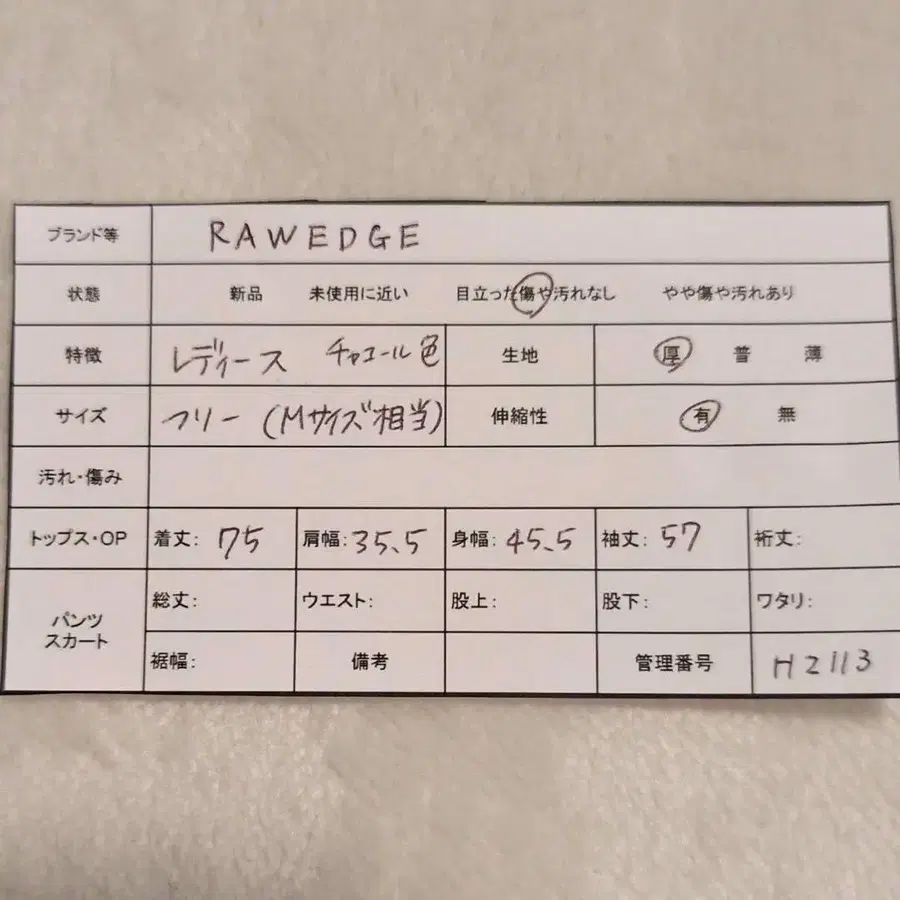 ブランド等 RAWEDGE
状態 新品 未使用に近い 目立った傷や汚れなし やや傷や汚れあり
特徴 レディース チャコール色 生地 厚 普 薄
サイズ フリー (Mサイズ相当) 伸縮性 有 無
汚れ・傷み
トップス・OP 着丈: 75 肩幅: 35.5 身幅: 45.5 袖丈: 57 裄丈:
パンツ
スカート
総丈: ウエスト: 股上: 股下: ワタリ:
裾幅: 備考 管理番号 H2113